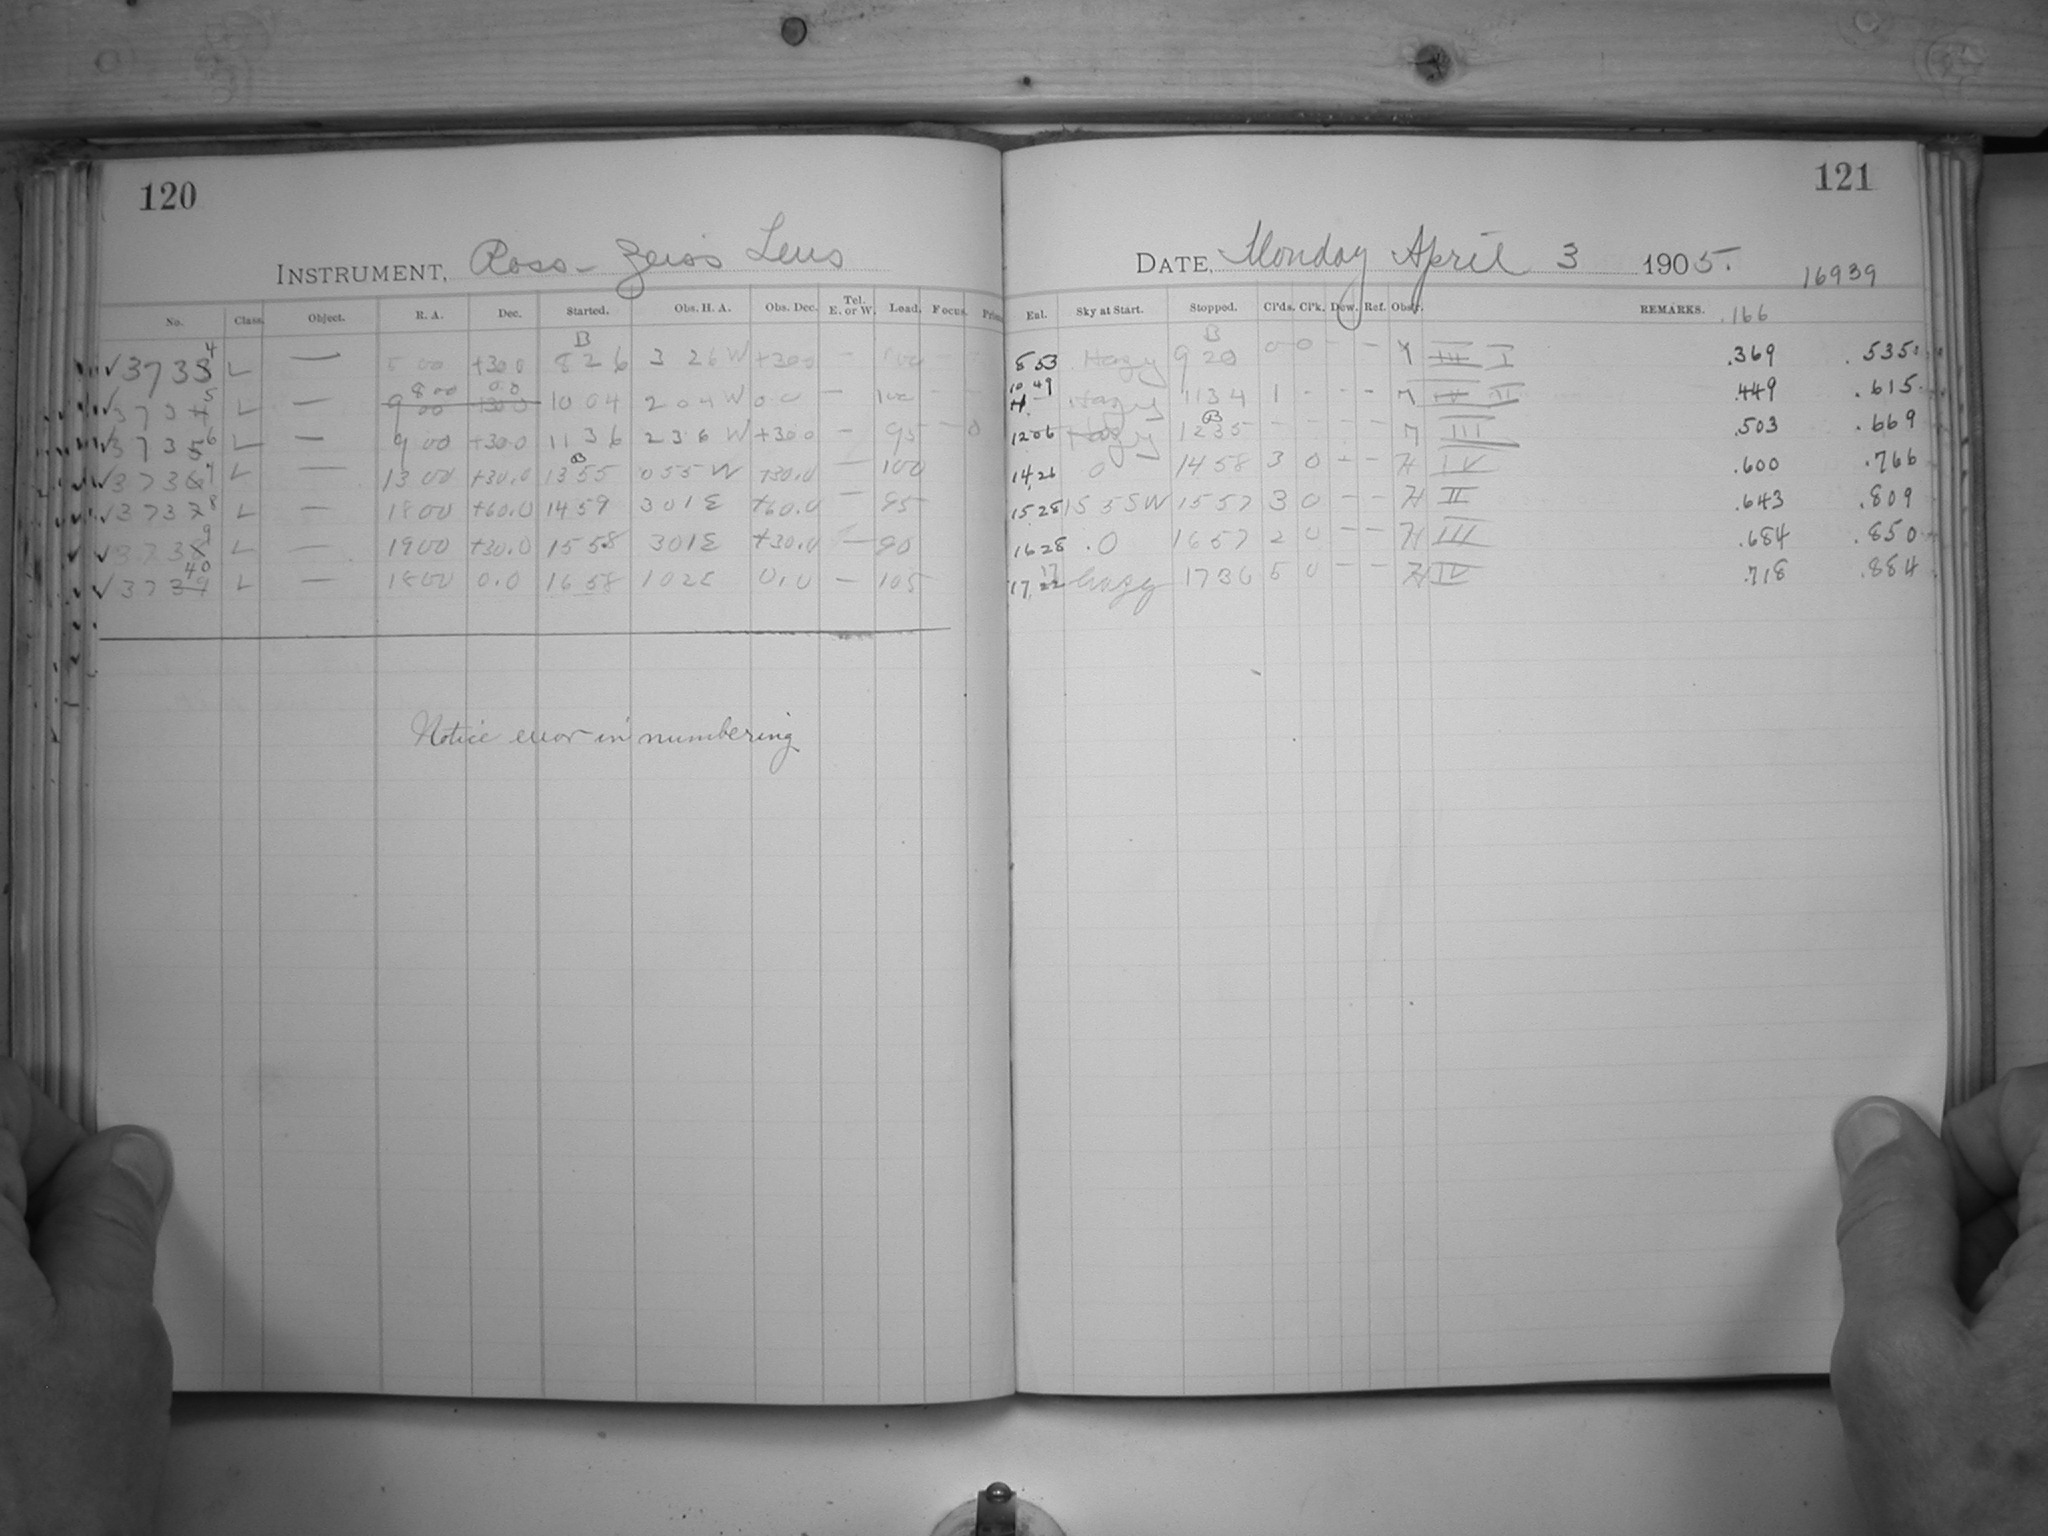 120
INSTRUMENT, Ross-Zeiss Lens
No. Class. Object. R. A. Dec. Started. Obs. H. A. Obs. Dec. Tel. E. or W. Load. Focus.
B
3733 4 L — 5 00 +30.0 8 26 3 26 W +30.0 — 100
8 00 0.0
3734 5 L — 9 00 +30.0 10 04 2 04 W 0.0 — 100
3735 6 L — 9 00 +30.0 11 36 2 36 W +30.0 — 95
B
3736 7 L — 13 00 +30.0 13 55 0 55 W +30.0 — 100
3737 8 L — 18 00 +60.0 14 59 3 01 E +60.0 — 95
3738 9 L — 19 00 +30.0 15 58 3 01 E +30.0 — 90
3739 40 L — 18 00 0.0 16 58 1 02 E 0.0 — 105
Notice error in numbering
121
DATE, Monday April 3 1905.
16939
Ent. Sky at Start. Stopped. Cl'ds. Cl'k. Dew. Ref. Obsr. REMARKS. .166
B
8 53 Hazy 9 20 0 0 - - III I .369 .535
10 49 Hazy 11 34 1 - - - II .449 .615
B
12 06 Hazy 12 35 - - - - III .503 .669
14 26 0 14 58 3 0 - - H IV .600 .766
15 28 15 55 W 15 57 3 0 - - H II .643 .809
16 28 .0 16 57 2 0 - - H III .684 .850
17 17 22 hazy 17 36 5 0 - - H IV .718 .884